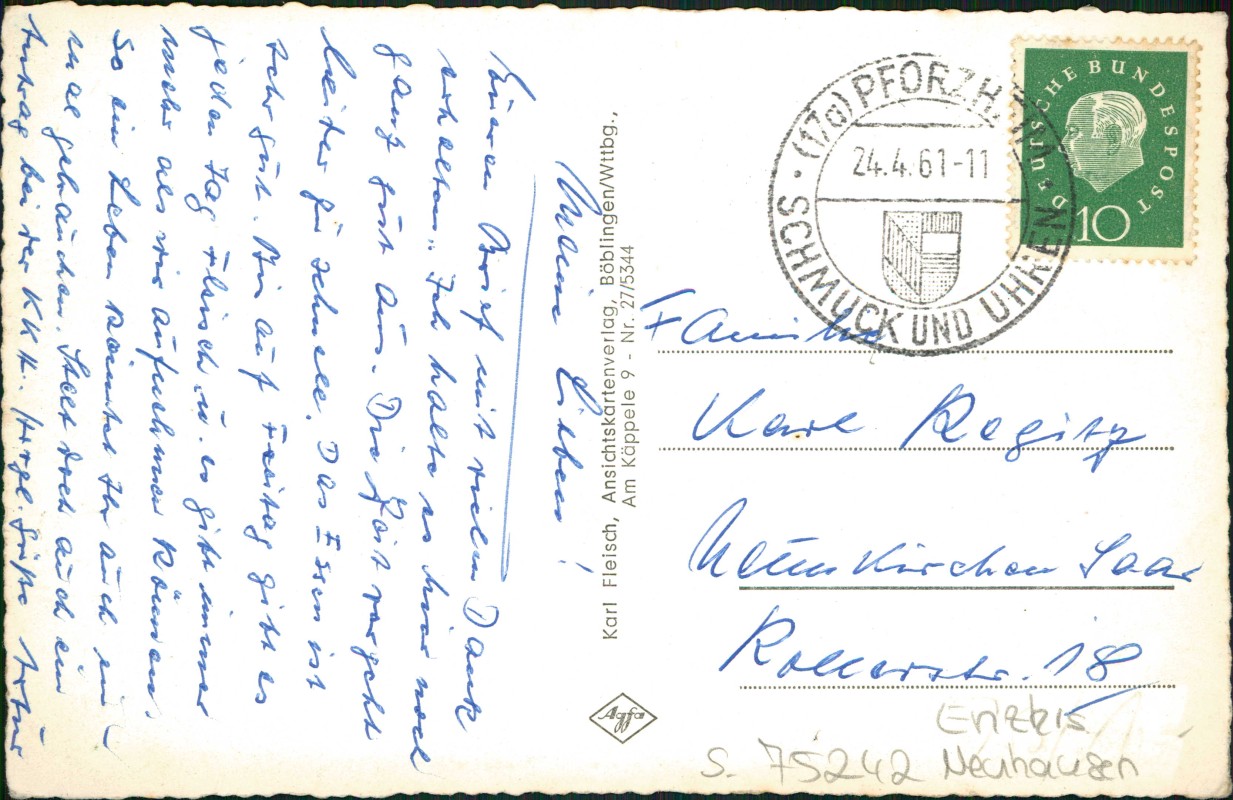 Meine Lieben!
Euren Brief mit vielem Dank
erhalten. Ich halte es hier noch
ganz gut aus. Die Zeit vergeht
leider zu schnell. Das Essen ist
sehr gut. Bis auf Freitag gibt es
jeden Tag Fleisch u. es gibt immer
mehr als wir aufnehmen können.
So ein Leben könntet Ihr auch ein-
mal gebrauchen. Stellt doch auch ein
Antrag bei der KKH. Herzl. Grüße Artur
Karl Fleisch, Ansichtskartenverlag, Böblingen/Wttbg.,
Am Käppele 9 - Nr. 27/5344
Agfa
(17a) PFORZHEIM
24.4.61-11
SCHMUCK UND UHREN
DEUTSCHE BUNDESPOST
10
Familie
Karl Regitz
Neunkirchen Saar
Rollerstr. 18
Enzkis
S. 75242 Neuhausen